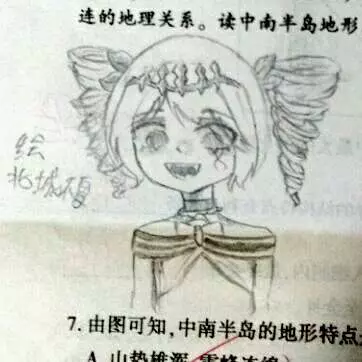 连的地理关系。读中南半岛地形
绘
北城夏
7. 由图可知,中南半岛的地形特点
A. 山势雄浑,雪峰连绵